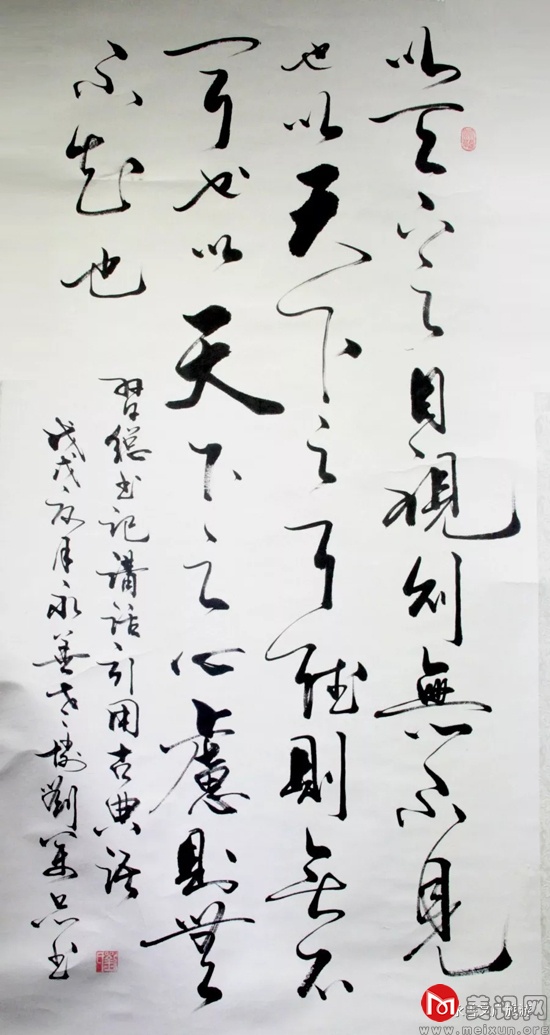 以天下之目視則無不見
也以天下之耳聽則無不
聞也以天下之心慮則無
不知也
習總書記講話引用古典語
戊戌夏月永善老樹劉書
美讯网
www.meixun.org